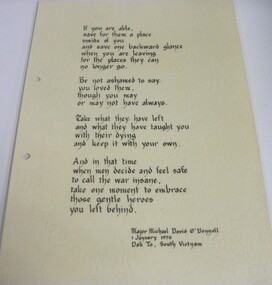 If you are able,
save for them a place
inside of you
and save one backward glance
when you are leaving
for the places they can
no longer go.
Be not ashamed to say
you loved them,
though you may
or may not have always.
Take what they have left
and what they have taught you
with their dying
and keep it with your own.
And in that time
when men decide and feel safe
to call the war insane,
take one moment to embrace
those gentle heroes
you left behind.
Major Michael David O'Donnell
1 January 1970
Dak To, South Vietnam